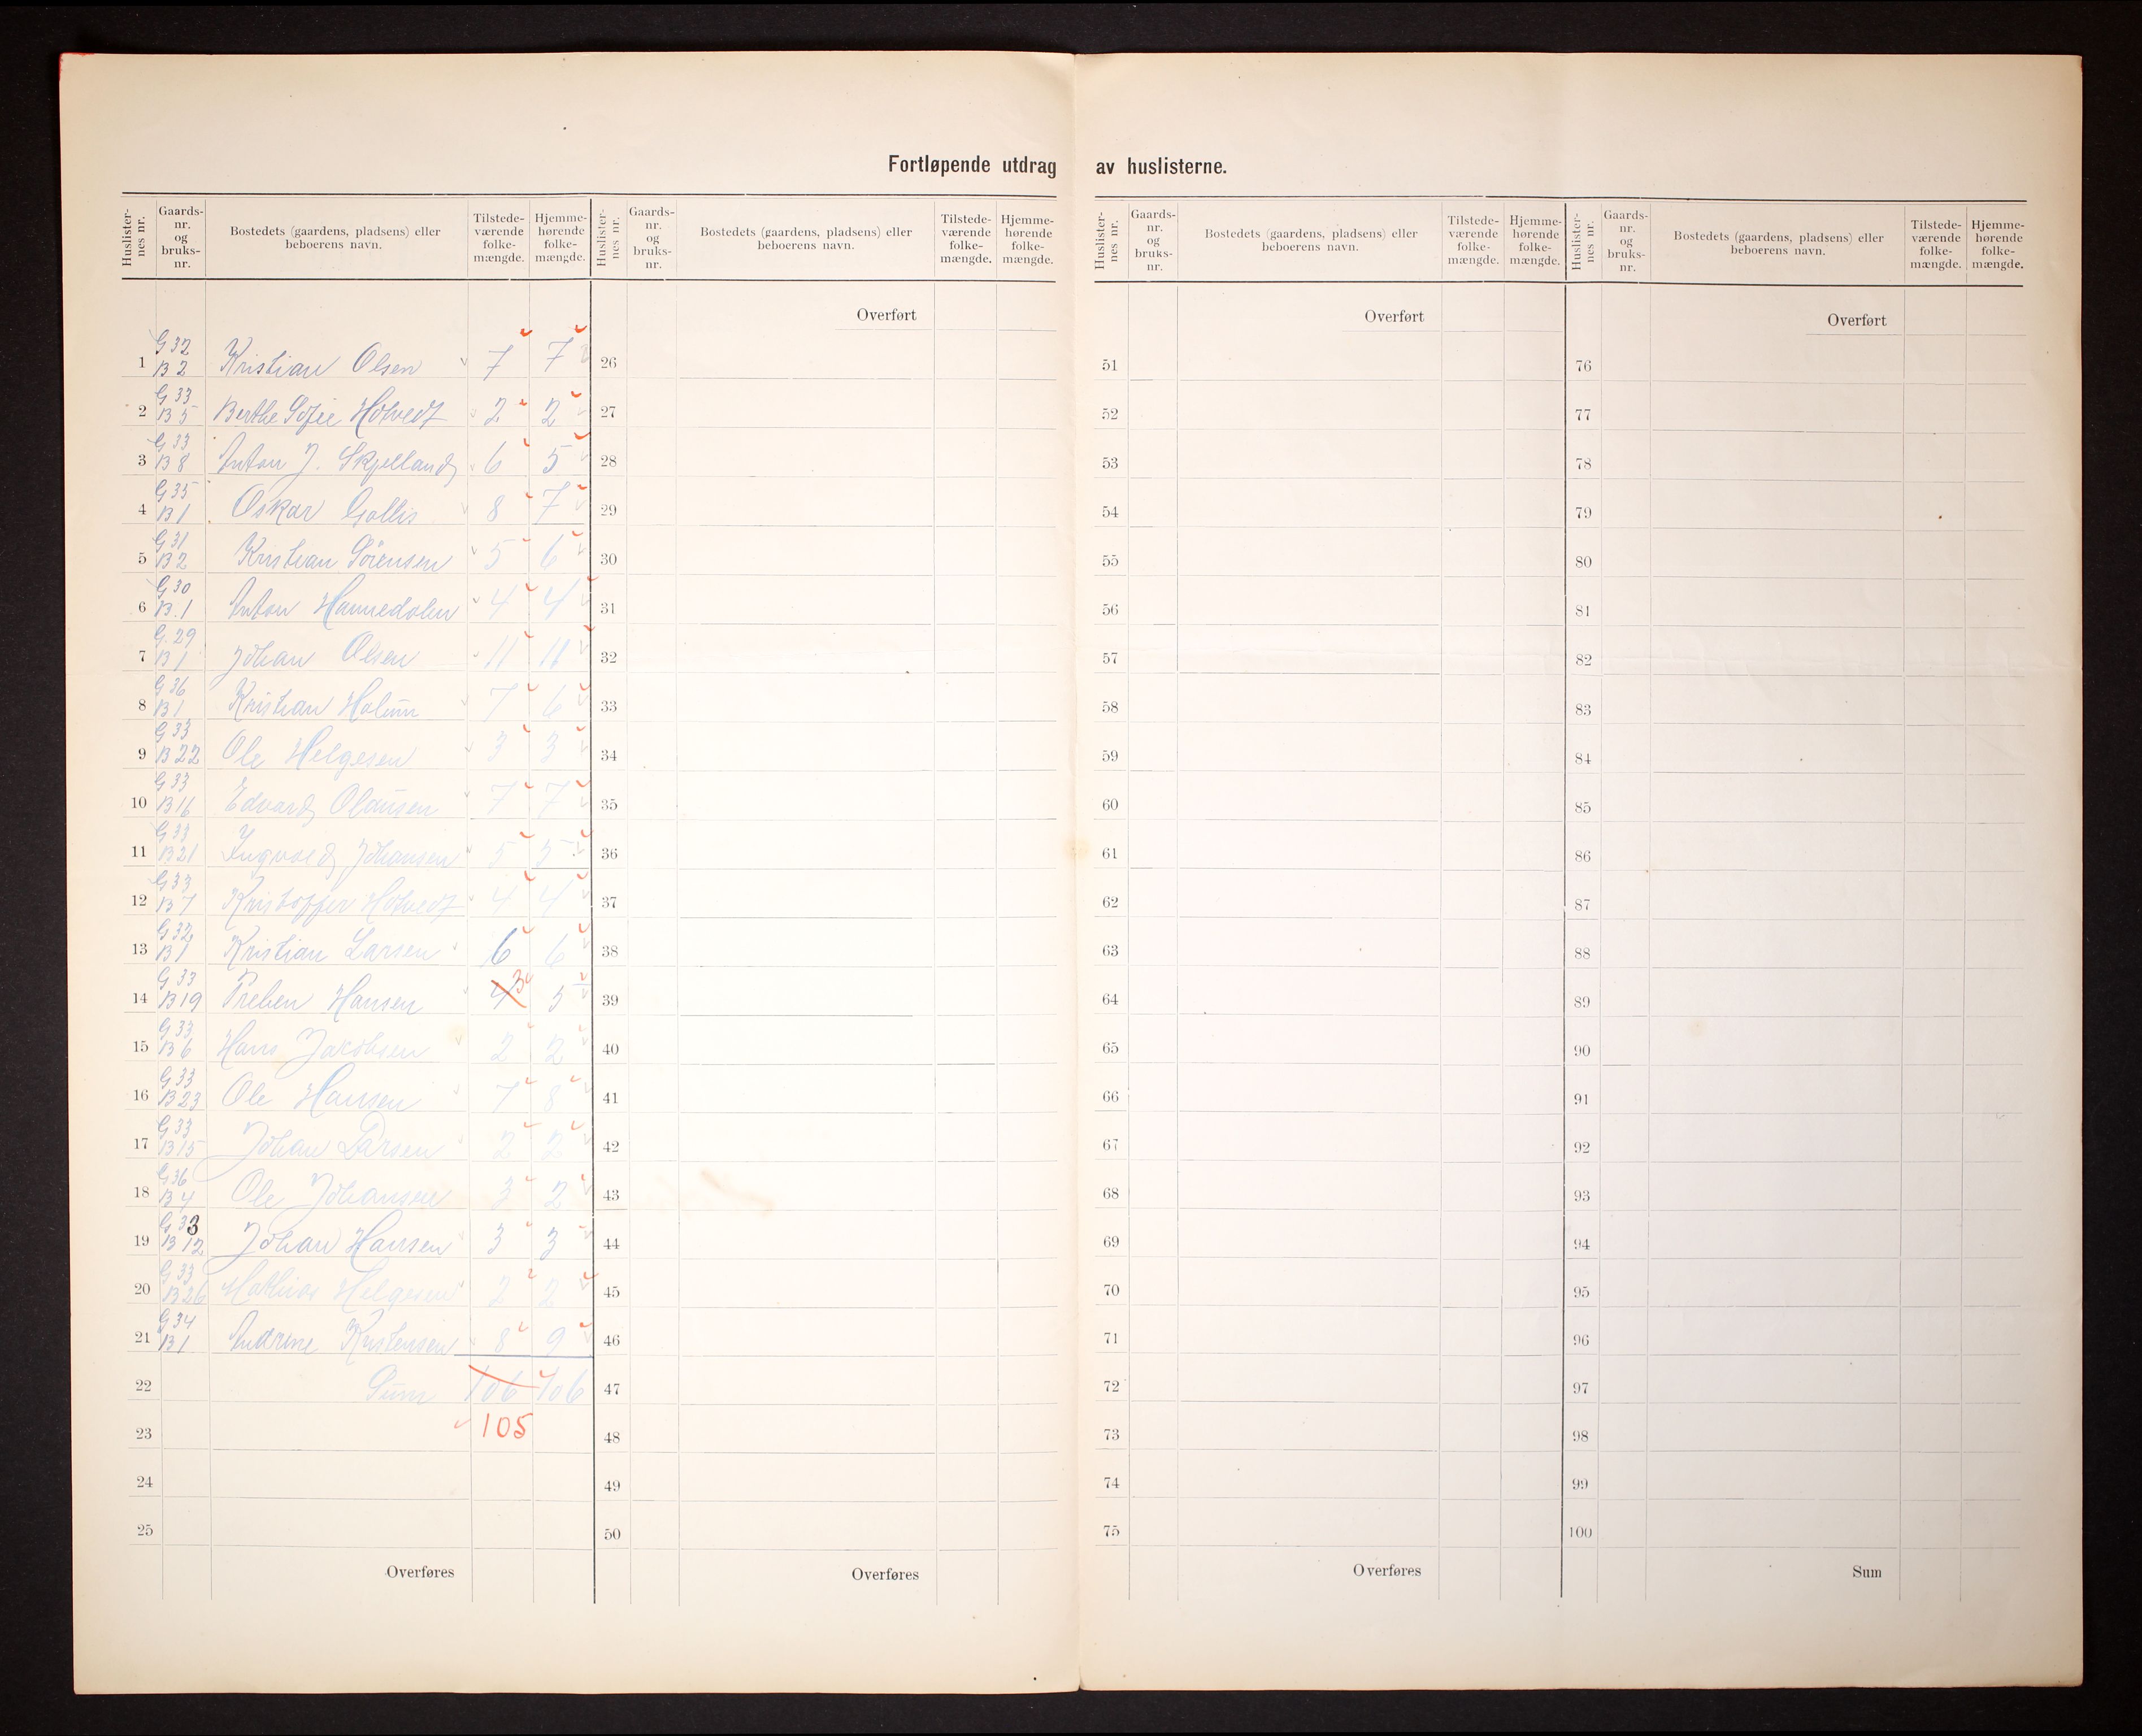 Fortløpende utdrag av huslisterne.
Huslister- nes nr. Gaards- nr. og bruks- nr. Bostedets (gaardens, pladsens) eller beboerens navn. Tilstede- værende folke- mængde. Hjemme- hørende folke- mængde.
1 G 32 B 2 Kristian Olsen 7 7
2 G 33 B 5 Berthe Sofie Hotvedt 2 2
3 G 33 B 8 Anton J. Skjelland 6 5
4 G 35 B 1 Oskar Gallis 8 7
5 G 31 B 2 Kristian Sörensen 5 6
6 G 30 B. 1 Anton Hannedalen 4 4
7 G. 29 B 1 Johan Olsen 11 11
8 G 36 B 1 Kristian Holum 7 6
9 G 33 B 22 Ole Helgesen 3 3
10 G 33 B 16 Edvard Olausen 7 7
11 G 33 B 21 Ingvald Johansen 5 5
12 G 33 B 7 Kristoffer Hotvedt 4 4
13 G 32 B 1 Kristian Larsen 6 6
14 G 33 B 19 Preben Hansen 4 3 3
15 G 33 B 6 Hans Jakobsen 2 2
16 G 33 B 23 Ole Hansen 7 8
17 G 33 B 15 Johan Larsen 2 2
18 G 36 B 4 Ole Johansen 3 2
19 G 33 B 12 Johan Hansen 3 3
20 G 33 B 26 Mathias Helgesen 2 2
21 G 34 B 1 Andrine Kristensen 8 9
22 Sum 106 106
23 105
24
25
Overføres
Huslister- nes nr. Gaards- nr. og bruks- nr. Bostedets (gaardens, pladsens) eller beboerens navn. Tilstede- værende folke- mængde. Hjemme- hørende folke- mængde.
Overført
26
27
28
29
30
31
32
33
34
35
36
37
38
39
40
41
42
43
44
45
46
47
48
49
50
Overføres
Huslister- nes nr. Gaards- nr. og bruks- nr. Bostedets (gaardens, pladsens) eller beboerens navn. Tilstede- værende folke- mængde. Hjemme- hørende folke- mængde.
Overført
51
52
53
54
55
56
57
58
59
60
61
62
63
64
65
66
67
68
69
70
71
72
73
74
75
Overføres
Huslister- nes nr. Gaards- nr. og bruks- nr. Bostedets (gaardens, pladsens) eller beboerens navn. Tilstede- værende folke- mængde. Hjemme- hørende folke- mængde.
Overført
76
77
78
79
80
81
82
83
84
85
86
87
88
89
90
91
92
93
94
95
96
97
98
99
100
Sum